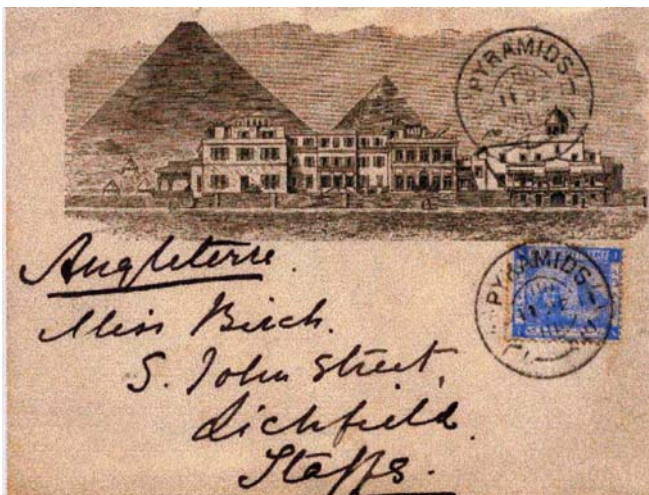 PYRAMIDS
PYRAMIDS
Angleterre.
Miss Birch.
S. John Street,
Lichfield
Staffs.